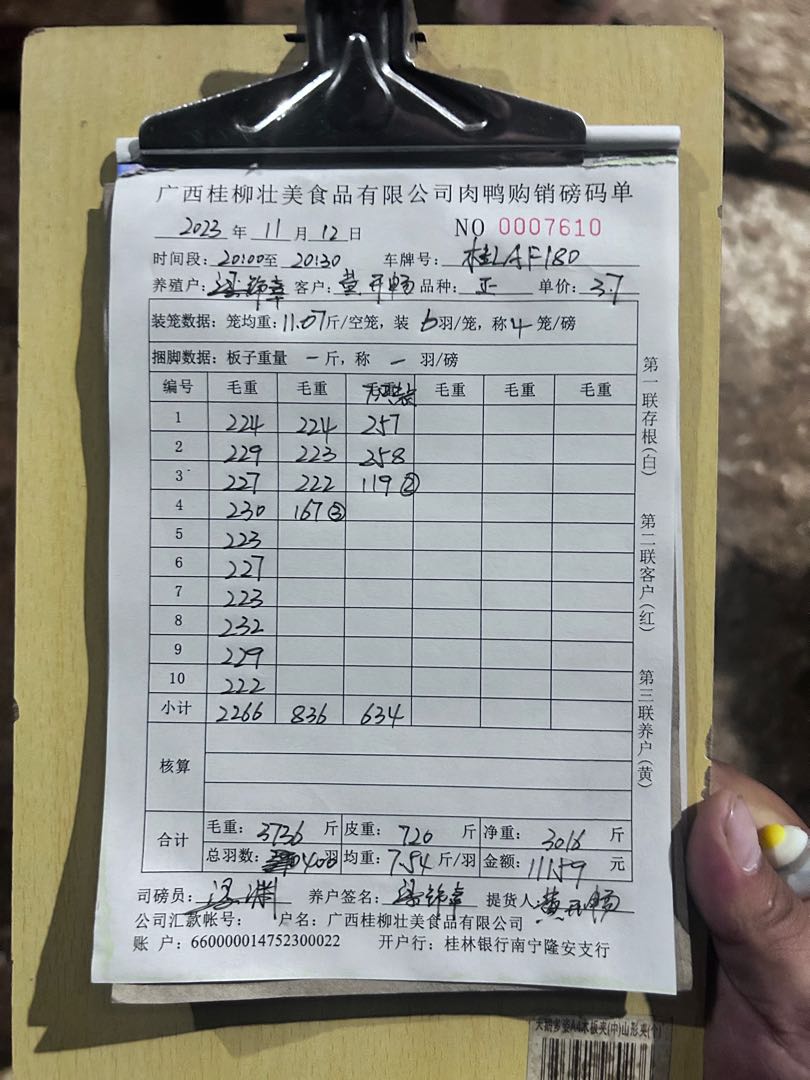 广西桂柳壮美食品有限公司肉鸭购销磅码单
2023 年 11 月 12 日 NO 0007610
时间段: 20:00至 20:30 车牌号: 桂LAF180
养殖户: 梁锦幸 客户: 黄开畅 品种: 正 单价: 3.7
装笼数据: 笼均重: 11.07 斤/空笼, 装 6 羽/笼, 称 4 笼/磅
捆脚数据: 板子重量 一 斤, 称 一 羽/磅
编号 毛重 毛重 毛重 毛重 毛重
1 224 224 257
2 229 223 258
3 227 222 119②
4 230 167③
5 223
6 227
7 223
8 232
9 229
10 222
小计 2266 836 634
核算
合计 毛重: 3736 斤 皮重: 720 斤 净重: 3016 斤
总羽数: 400 羽 均重: 7.54 斤/羽 金额: 11159 元
司磅员: 养户签名: 梁锦幸 提货人: 黄开畅
公司汇款帐号: 户名: 广西桂柳壮美食品有限公司
账 户: 660000014752300022 开户行: 桂林银行南宁隆安支行
第一联存根(白) 第二联客户(红) 第三联养户(黄)
A4木板夹(中)山形夹(个)